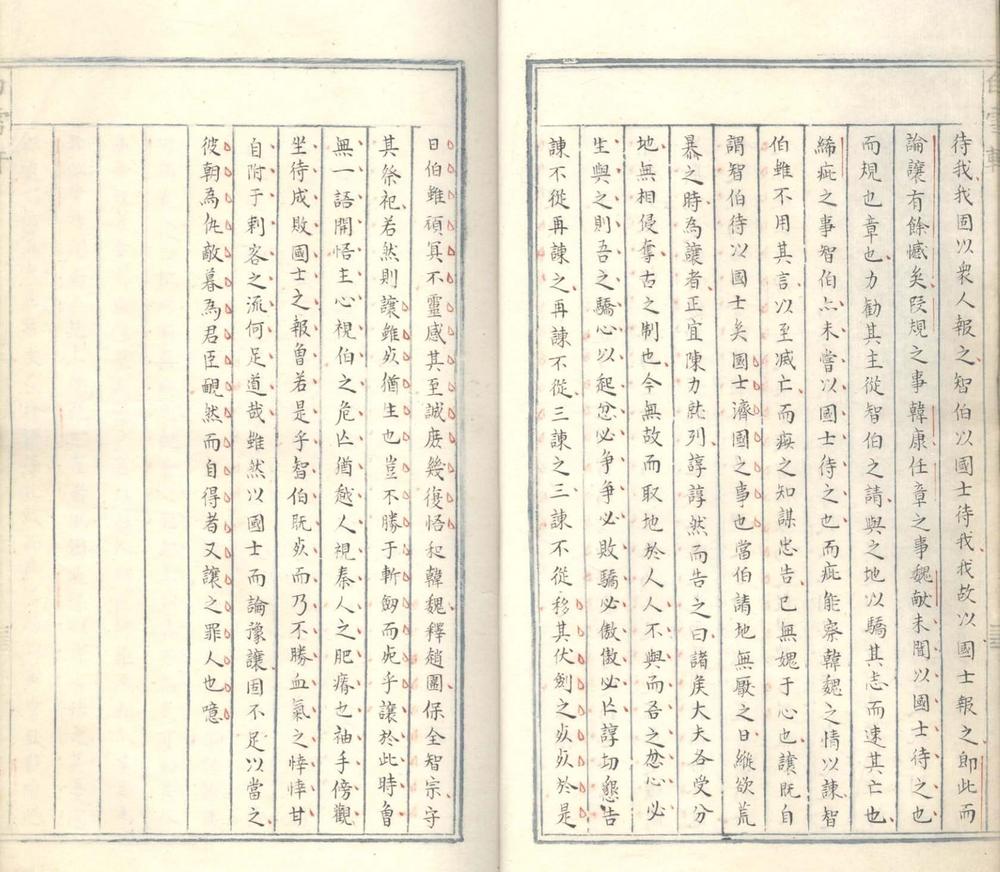 待我我固以衆人報之智伯以國士待我我故以國士報之即此而
論讓有餘憾矣段規之事韓康任章之事魏献未聞以國士待之也
而規也章也力勸其主從智伯之請與之地以驕其志而速其亡也
絺疵之事智伯亦未嘗以國士待之也而疵能察韓魏之情以諫智
伯雖不用其言以至滅亡而疵之知謀忠告已無媿于心也讓既自
謂智伯待以國士矣國士濟國之事也當伯請地無厭之日縱欲荒
暴之時為讓者正宜陳力就列諄諄然而告之曰諸矦大夫各受分
地無相侵奪古之制也今無故而取地於人人不與而吾之忿心必
生與之則吾之驕心以起忿必争争必敗驕必傲傲必亡諄切懇告
諫不從再諫之再諫不從三諫之三諫不從移其伏劍之死死於是
日伯雖頑冥不靈感其至誠庶幾復悟和韓魏釋趙圍保全智宗守
其祭祀若然則讓雖死猶生也豈不勝于斬劒而死乎讓於此時曾
無一語開悟主心視伯之危亡猶越人視秦人之肥瘠也袖手傍觀
坐待成敗國士之報曾若是乎智伯既死而乃不勝血氣之悻悻甘
自附于刺客之流何足道哉雖然以國士而論豫讓固不足以當之
彼朝為仇敵暮為君臣靦然而自得者又讓之罪人也噫